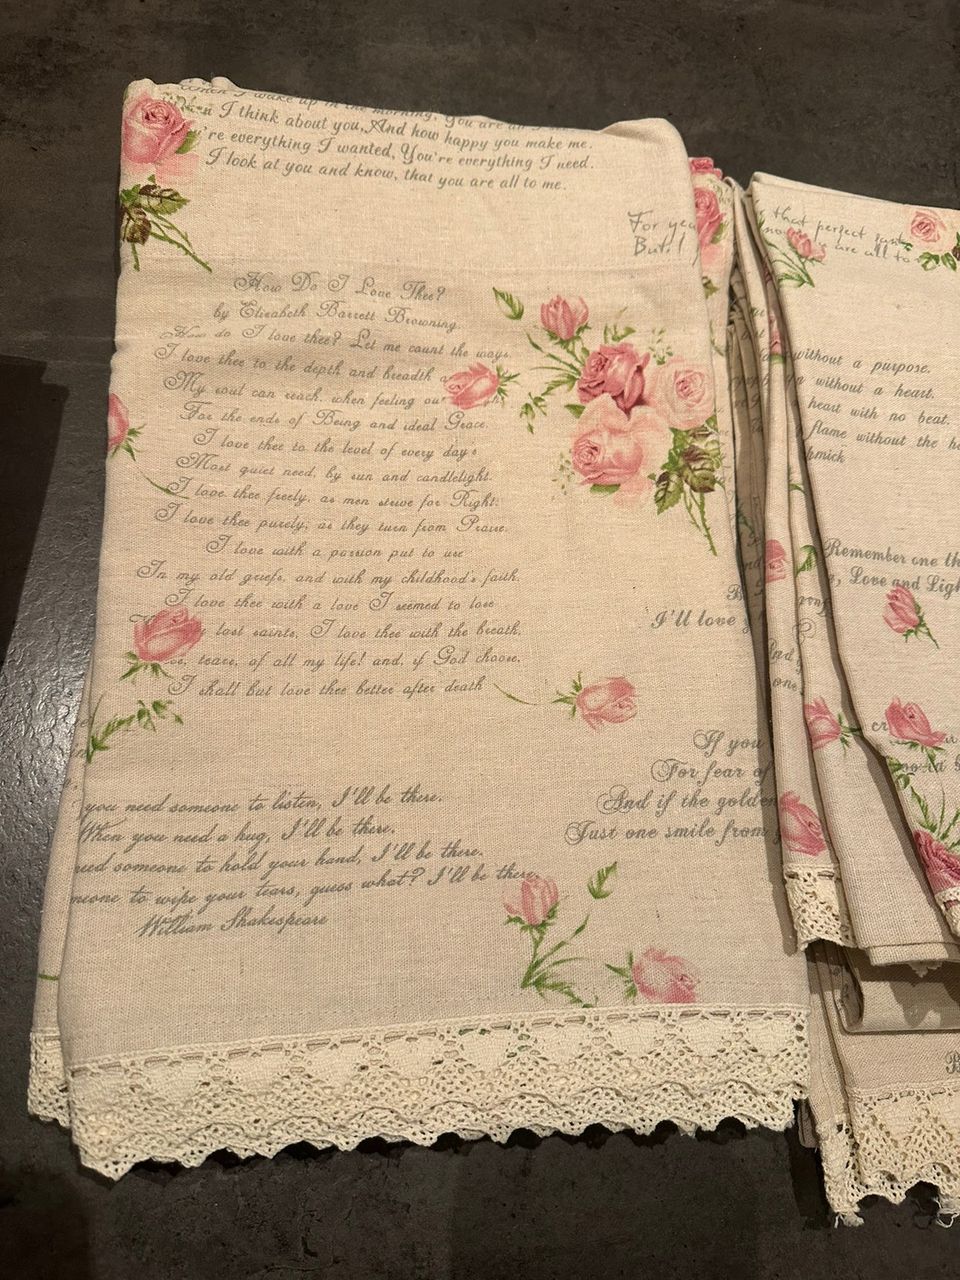 I wake up in the morning, You are
When I think about you, And how happy you make me.
're everything I wanted, You're everything I need.
I look at you and know, that you are all to me.
For
But I
How Do I Love Thee?
by Elizabeth Barrett Browning
How do I love thee? Let me count the ways.
I love thee to the depth and breadth
My soul can reach, when feeling out
For the ends of Being and ideal Grace.
I love thee to the level of every day's
Most quiet need, by sun and candlelight.
I love thee freely, as men strive for Right;
I love thee purely, as they turn from Praise.
I love with a passion put to use
In my old griefs, and with my childhood's faith.
I love thee with a love I seemed to lose
lost saints, I love thee with the breath,
tears, of all my life! and, if God choose,
I shall but love thee better after death
I'll love
If you
For fear of
And if the golden
Just one smile from
you need someone to listen, I'll be there.
When you need a hug, I'll be there.
need someone to hold your hand, I'll be there.
meone to wipe your tears, guess what? I'll be there.
William Shakespeare
that perfect
are all to
without a purpose.
without a heart.
heart with no beat.
flame without the
hmick
Remember one
Love and